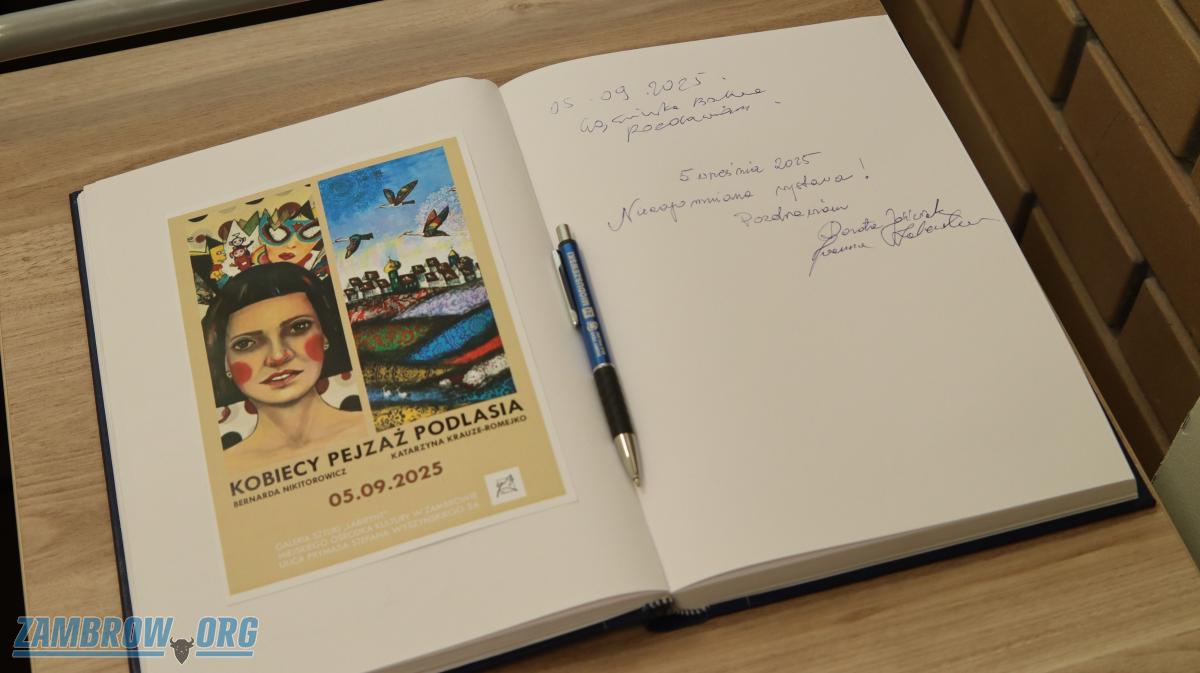 KOBIECY PEJZAŻ PODLASIA
BERNARDA NIKITOROWICZ
KATARZYNA KRAUZE-ROMEJKO
05.09.2025
GALERIA SZTUKI „LABIRYNT”
MIEJSKIEGO OŚRODKA KULTURY W ZAMBROWIE
ULICA PRYMASA STEFANA WYSZYŃSKIEGO 2A
05.09.2025.
5 września 2025
Niezapomniana wystawa!
Pozdrawiam
Dorota
Joanna
ZAMBROW.ORG